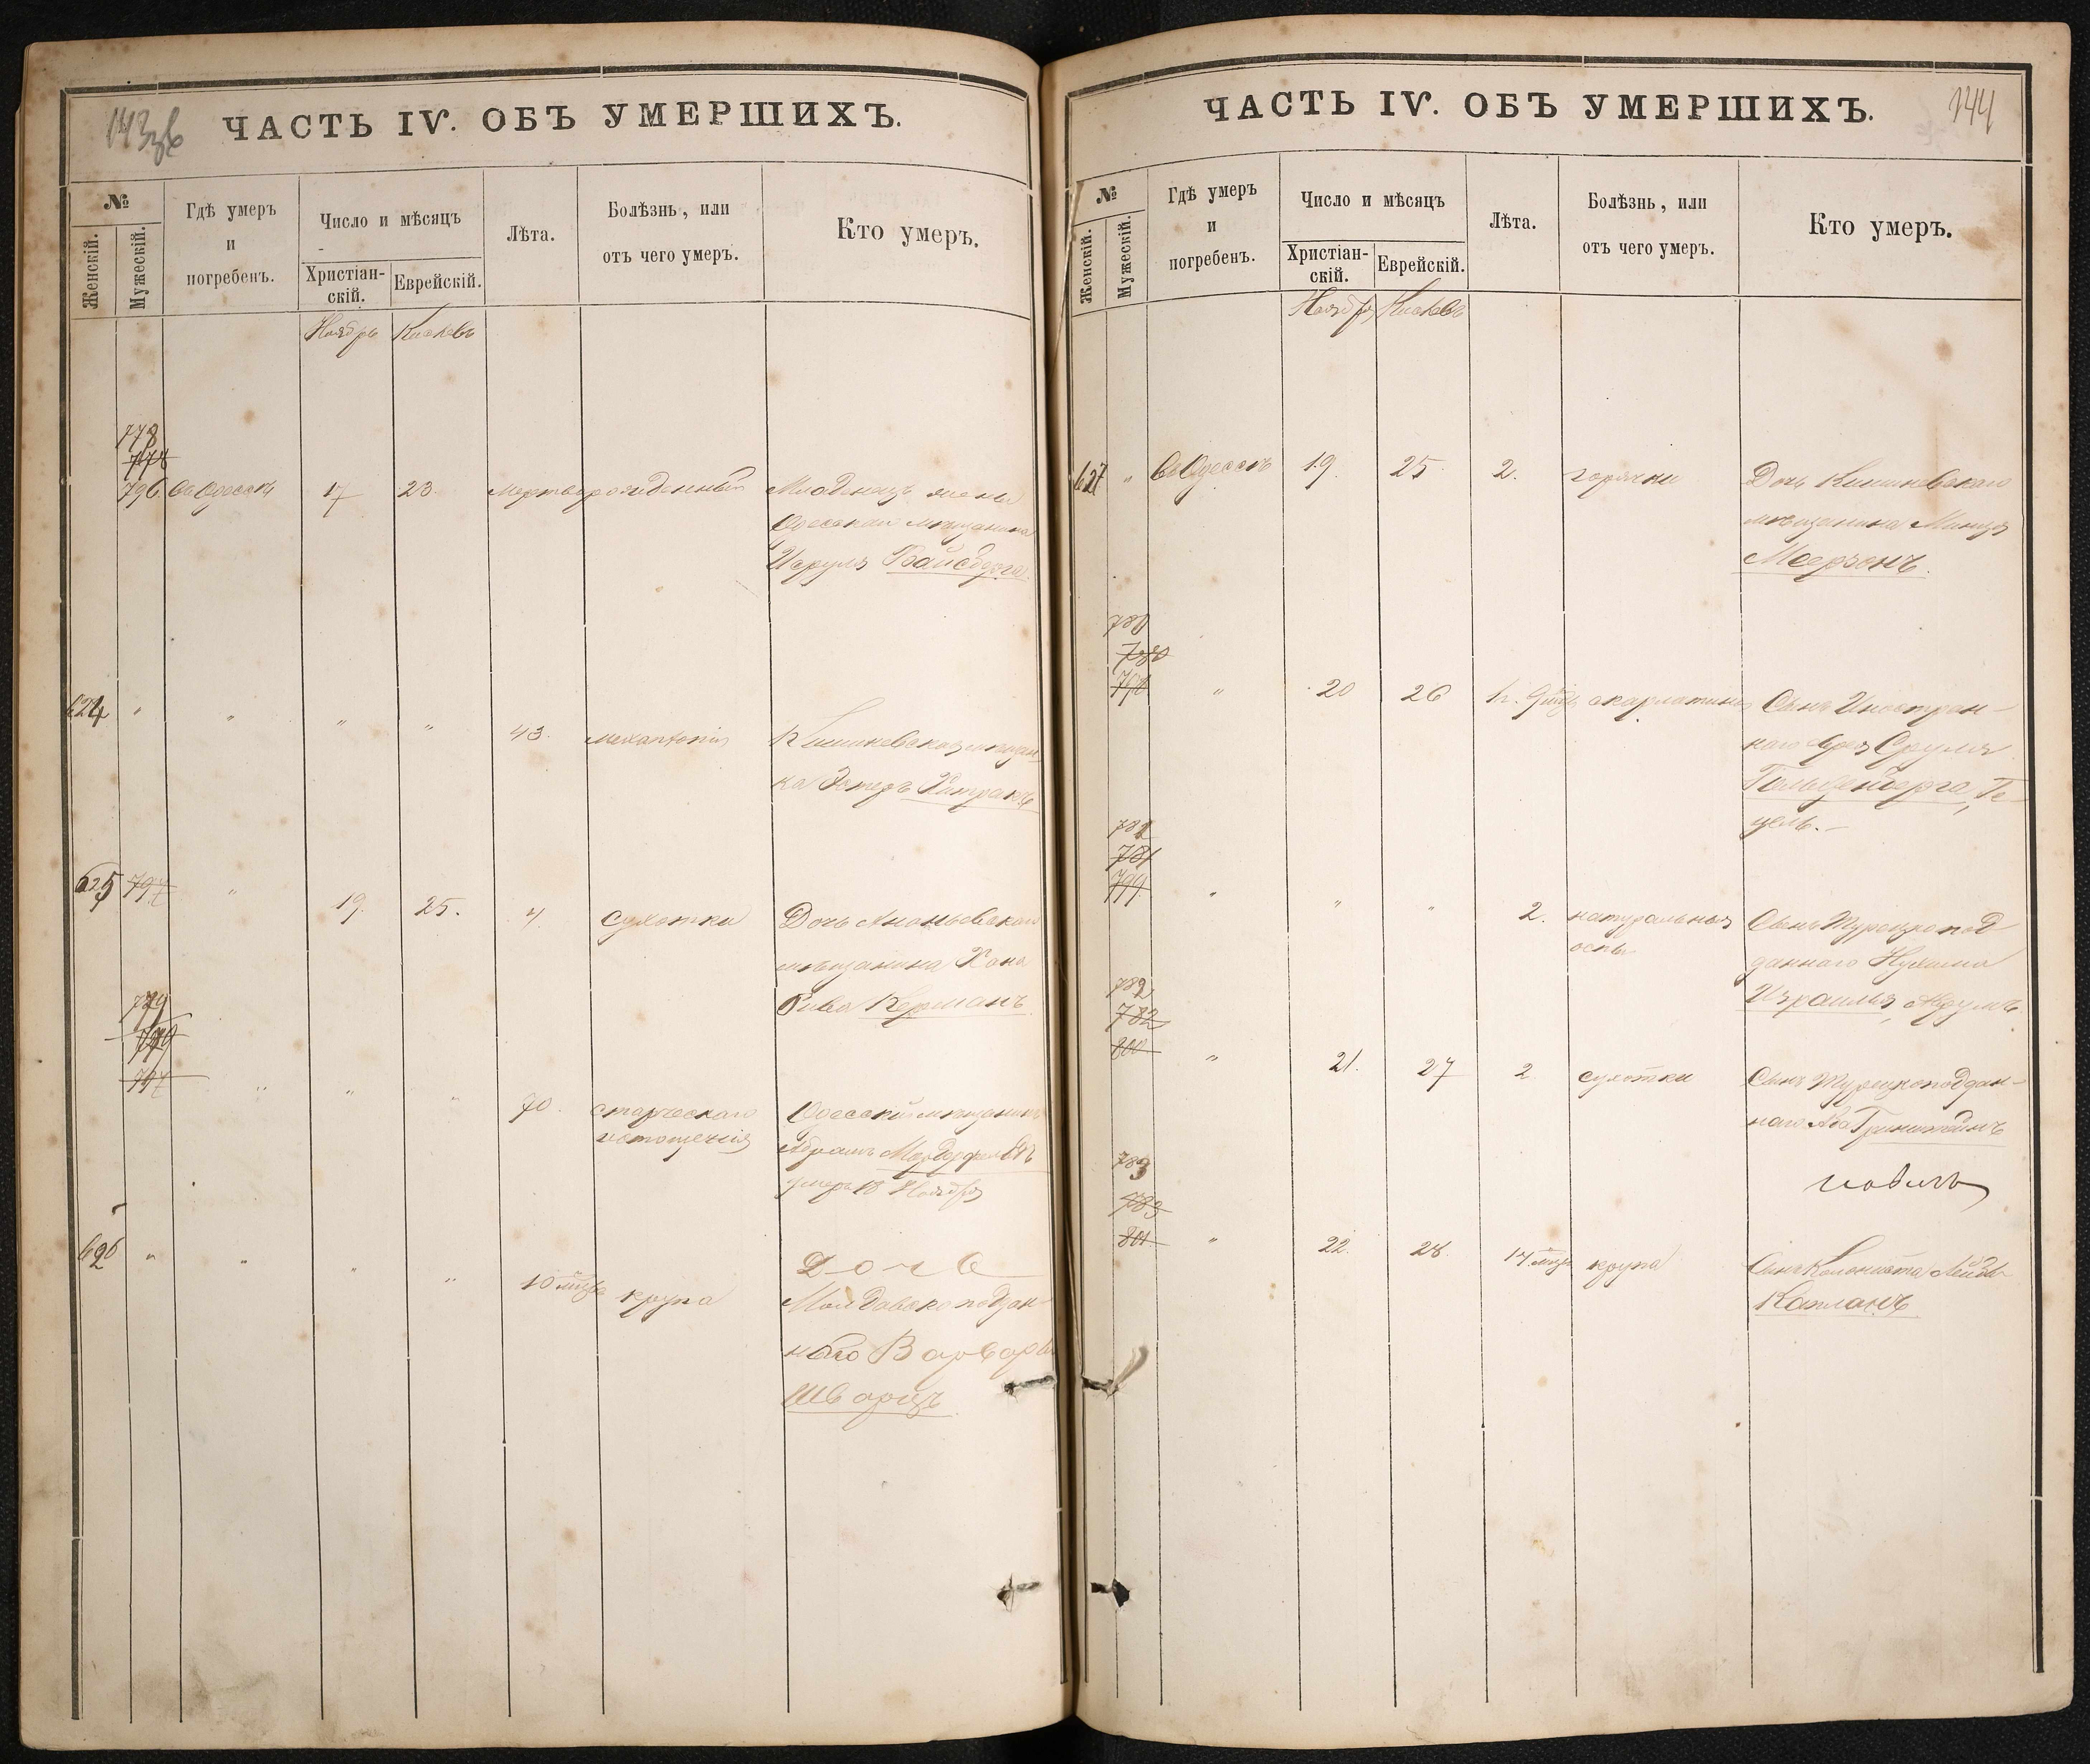 143 об
ЧАСТЬ IV. ОБЪ УМЕРШИХЪ.
№
Женскій.
Мужескій.
Гдѣ умеръ
и
погребенъ.
Число и мѣсяцъ
Христіан-
скій.
Еврейскій.
Лѣта.
Болѣзнь, или
отъ чего умеръ.
Кто умеръ.
Ноябрь Кислевъ
778
778
796 Въ Одессѣ 17 23 мертворожденный Младенецъ жены
Одесскаго мѣщанина
Исруля Вайсберга.
624 " " " " 43.
Кишиневская мѣщан
ка Эстеръ
625 797 " 19. 25. 4. сухотки Дочь Ананьевскаго
мѣщанина Хана
Рива Керманъ
779
779
797 " " " 70. старческаго Одесскій мѣщанинъ
истощенія Абрамъ
умеръ 18 Ноября
626 " " " " 10 мѣс. крупа Дочь
Молдавскоподдан-
наго Варвары
Шварцъ
144
ЧАСТЬ IV. ОБЪ УМЕРШИХЪ.
№
Женскій.
Мужескій.
Гдѣ умеръ
и
погребенъ.
Число и мѣсяцъ
Христіан-
скій.
Еврейскій.
Лѣта.
Болѣзнь, или
отъ чего умеръ.
Кто умеръ.
Ноябрь Кислевъ
627 " Въ Одессѣ 19. 25. 2. горячки Дочь Кишиневскаго
мѣщанина
Меерзонъ.
780
780
798 " 20 26 скарлатины Сынъ Иностран-
наго Сруля
Гольденберга, Ге-
цель.
781
781
799 " " " 2. натуральныя Сынъ Турецкопод
оспы даннаго Нухима
Израиля,
782
782
800 " 21. 27 2 сухотки Сынъ Турецкоподдан-
наго Гринштейнъ
783
783
801. " 22. 28. крупа Сынъ Колониста Лейба
Капланъ